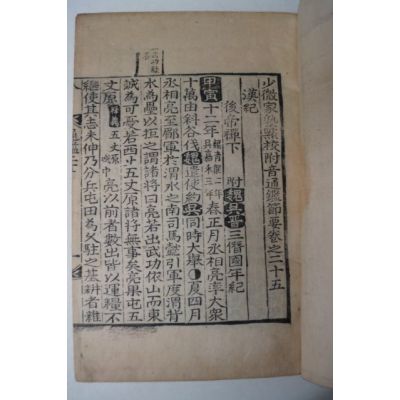 少微家塾點校附音通鑑節要卷之二十五
漢紀
後帝禪下 附魏吳晉三僭國年紀
甲寅十二年魏青龍二年吳嘉禾三年春正月丞相亮率大衆
十萬由斜谷伐魏遣使約吳同時大舉○夏四月
丞相亮至郿軍於渭水之南司馬懿引軍度渭背
水為壘以拒之謂諸將曰亮若出武功依山而東
誠為可憂若西上五丈原諸將無事矣亮果屯五
丈原釋義五丈原亮以前者數出皆以運糧不
繼使其志未伸乃分兵屯田為久駐之基耕者雜